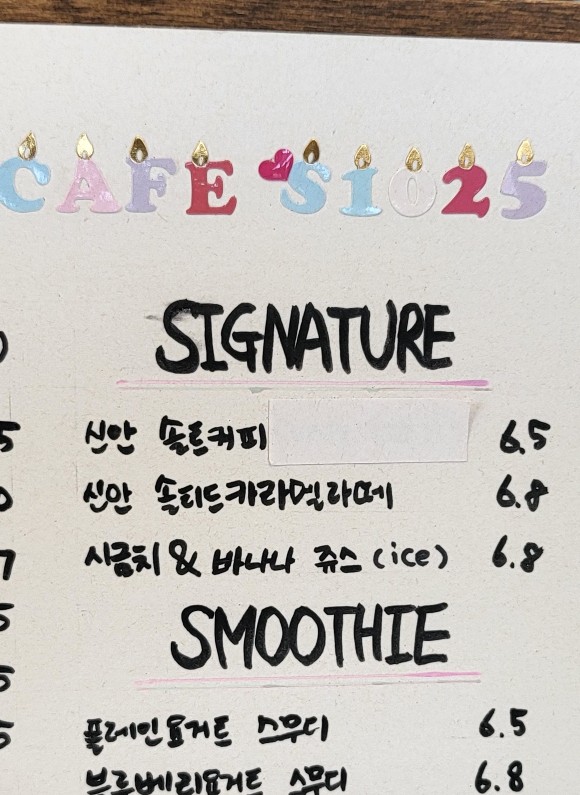 CAFE S1025
SIGNATURE
신안 솔트커피 6.5
신안 솔티드카라멜라떼 6.8
시금치 & 바나나 쥬스 (ice) 6.8
SMOOTHIE
플레인요거트 스무디 6.5
블루베리요거트 스무디 6.8